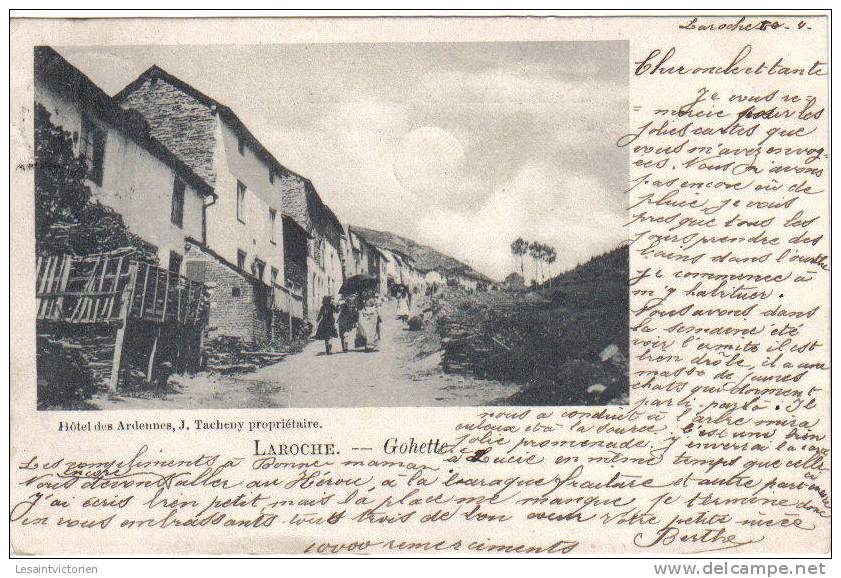 Laroche
Cher oncle et tante
Je vous re-
mercie pour les
jolies cartes que
vous m'avez envoy
ées. Nous n'avons
pas encore eû de
pluie je vais
presque tous les
jours prendre des
bains dans l'ourthe
je commence à
m'y habituer.
Nous avons dans
la semaine été
voir l'ermite il est
bien drôle, il a une
masse de jeunes
chats qui dorment
parti par là. Il
nous a conduit à l'arbre mira
culeux et à la source c'est une bien
jolie promenade. j'enverrai la carte
Hôtel des Ardennes, J. Tacheny propriétaire.
LAROCHE. -- Gohette
à Lucie en même temps que celle
Les compliments à Bonne maman
nous devons aller au Hérou, à la baraque fraiture et autre part
J'ai écris bien petit, mais la place me manque, je termine donc
en vous embrassants tous trois de bon coeur Votre petite nièce
Berthe
10000 remerciments
Lesaintvictorien
www.delcampe.net